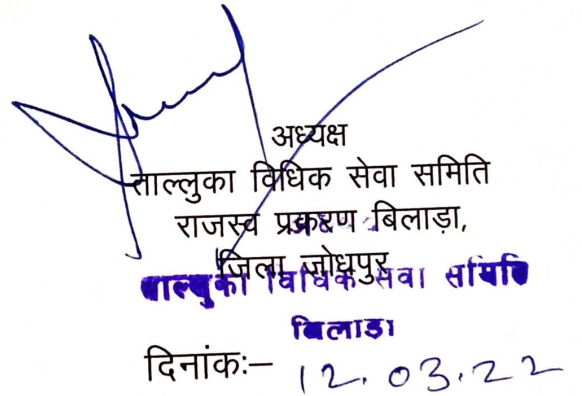 अध्यक्ष
ताल्लुका विधिक सेवा समिति
राजस्व प्रकरण बिलाड़ा,
जिला जोधपुर
ताल्लुका विधिक सेवा समिति
बिलाडा
दिनांकः– 12.03.22